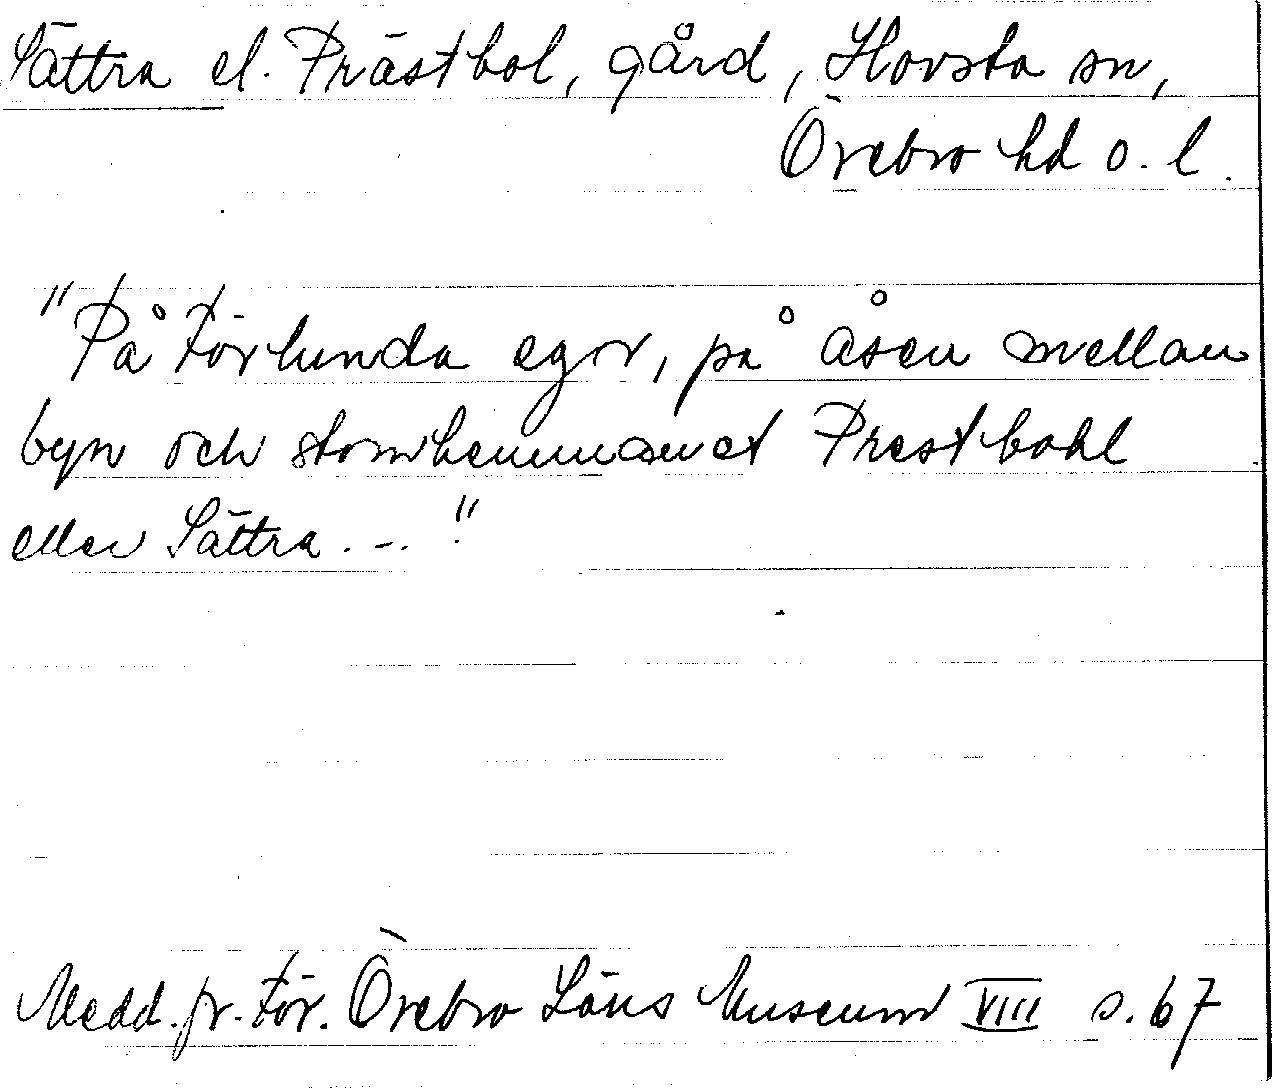 Sättra el. Prästbol, gård, Hovsta sn,
Örebro hd o. l.
"På Förlunda egor, på åsen mellan
byn och stomhemmanet Prestbohl
eller Sättra . - . "
Medd. fr. För. Örebro Läns Museum VIII s. 67